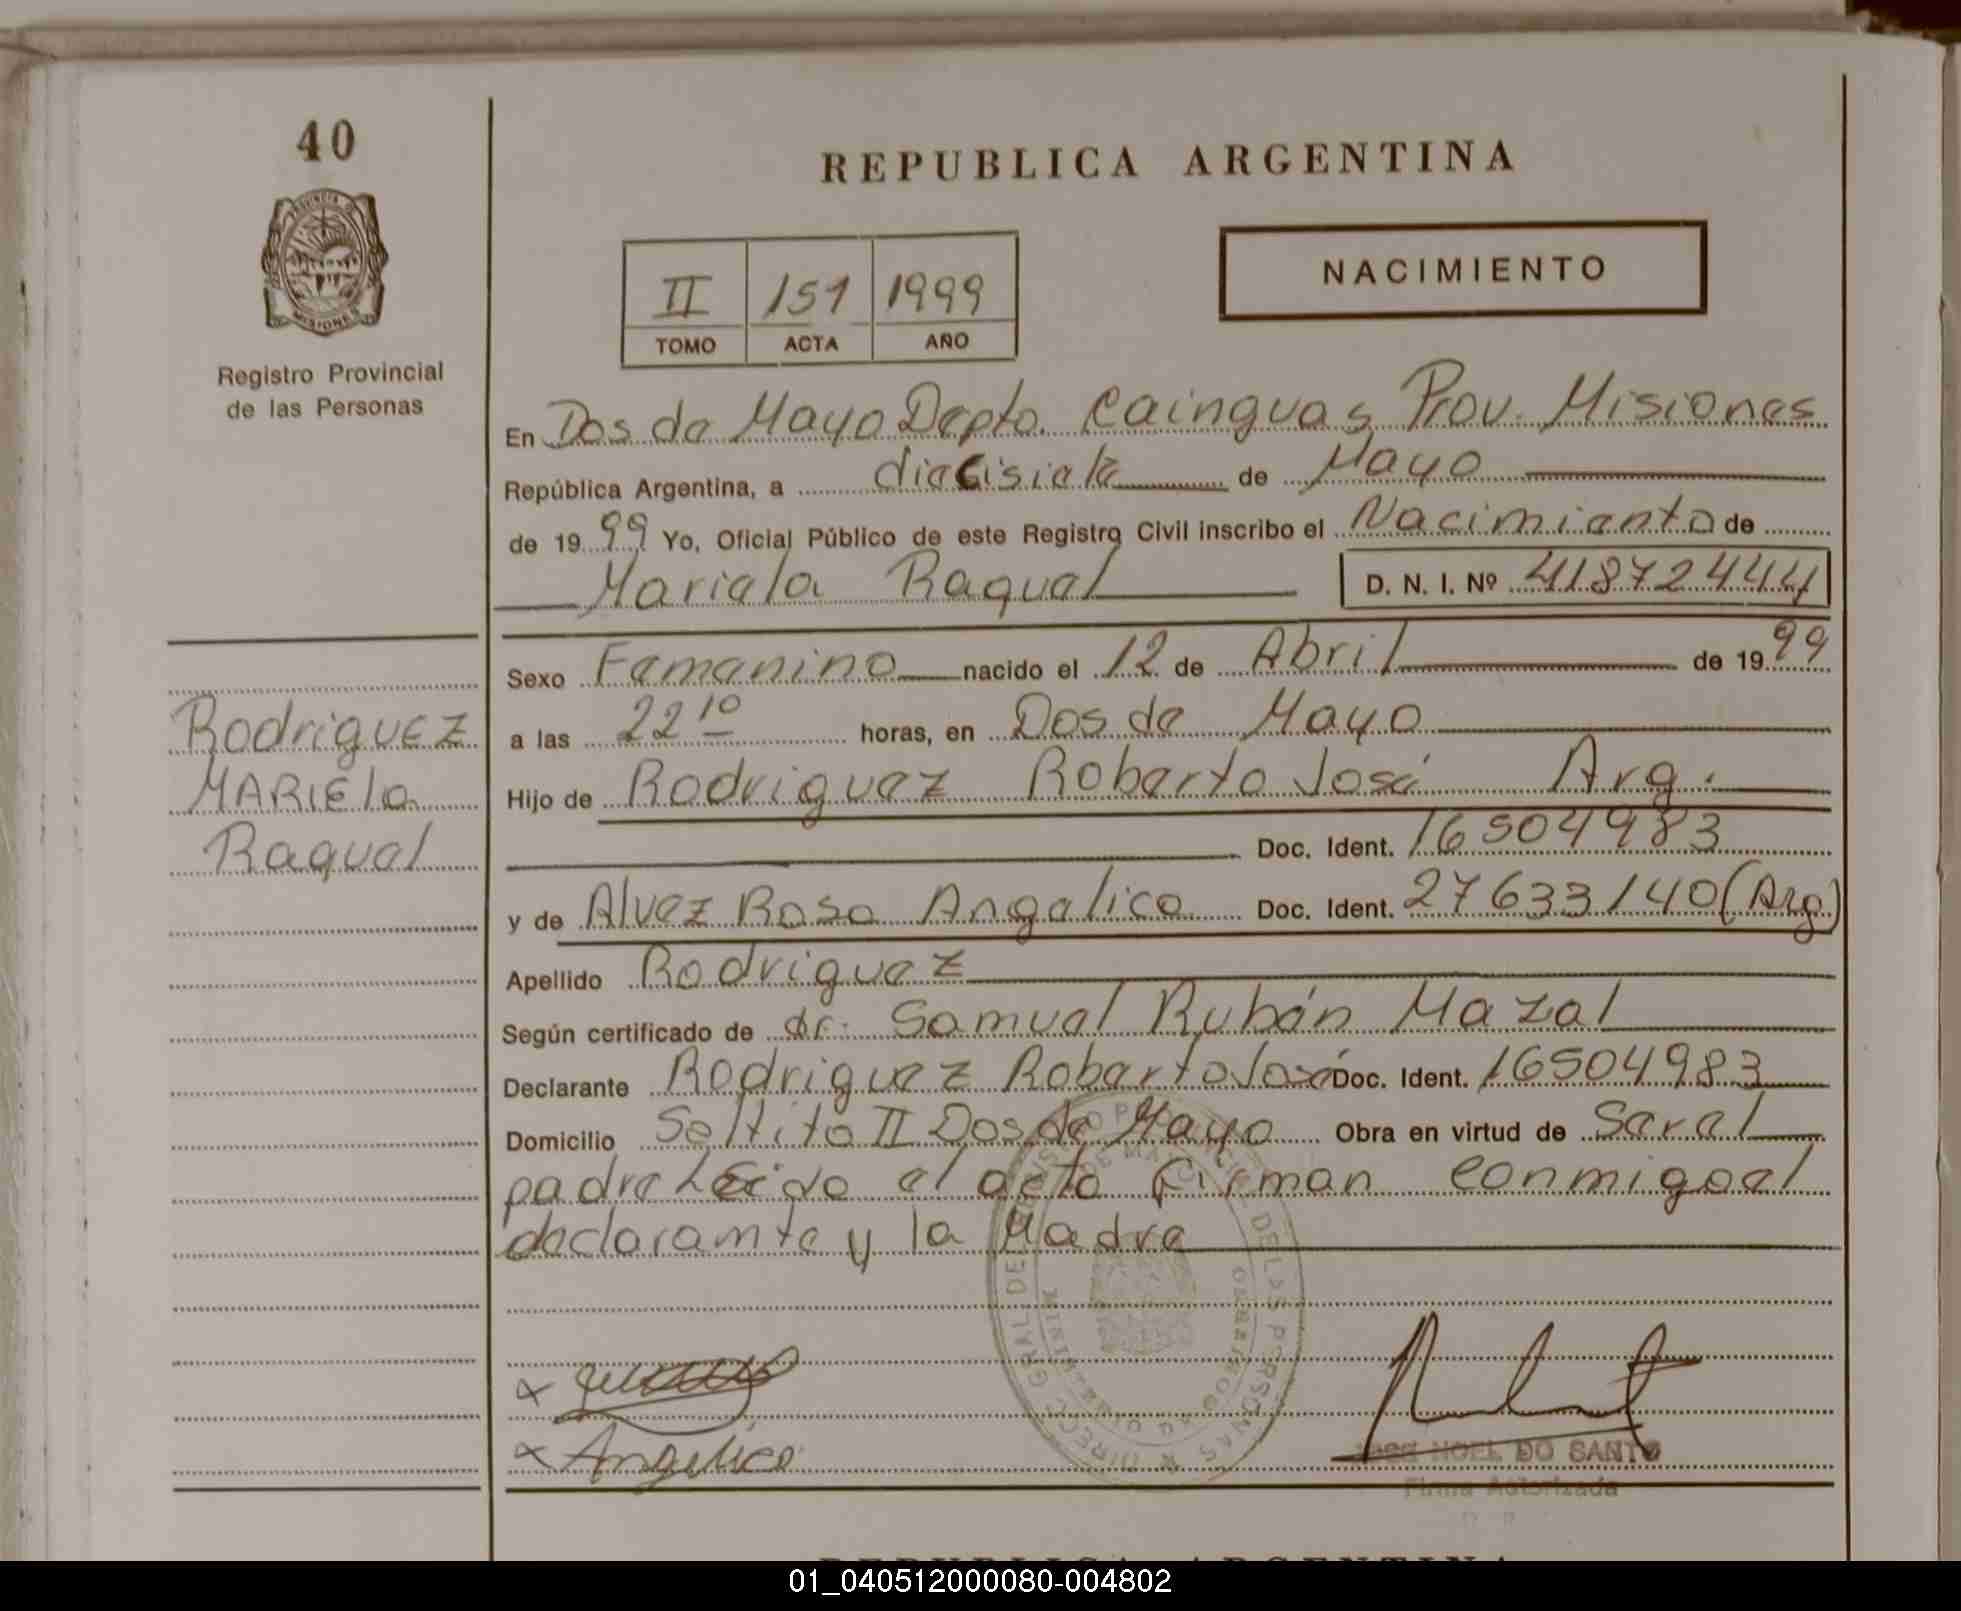 40
PROVINCIA DE
MISIONES
Registro Provincial
de las Personas
REPUBLICA ARGENTINA
II 151 1999
TOMO ACTA AÑO
NACIMIENTO
En Dos de Mayo Depto. Cainguas Prov. Misiones
República Argentina, a diecisiete de Mayo
de 1999 Yo, Oficial Público de este Registro Civil inscribo el Nacimiento de
Mariela Raquel D. N. I. Nº 41872444
Sexo Femenino nacido el 12 de Abril de 1999
a las 22 10 horas, en Dos de Mayo
Hijo de Rodriguez Roberto José Arg.
Doc. Ident. 16504983
y de Alvez Rosa Angelica Doc. Ident. 27633140 (Arg)
Apellido Rodriguez
Según certificado de dr. Samuel Rubén Mazal
Declarante Rodriguez Roberto José Doc. Ident. 16504983
Domicilio Saltito II Dos de Mayo Obra en virtud de Ser el
padre Leido el acta firman conmigo el
declarante y la Madre
Rodriguez
MARIEla
Raquel
x
x Angelica
NOEL DO SANTO
Firma Autorizada
REPUBLICA ARGENTINA
01_040512000080-004802